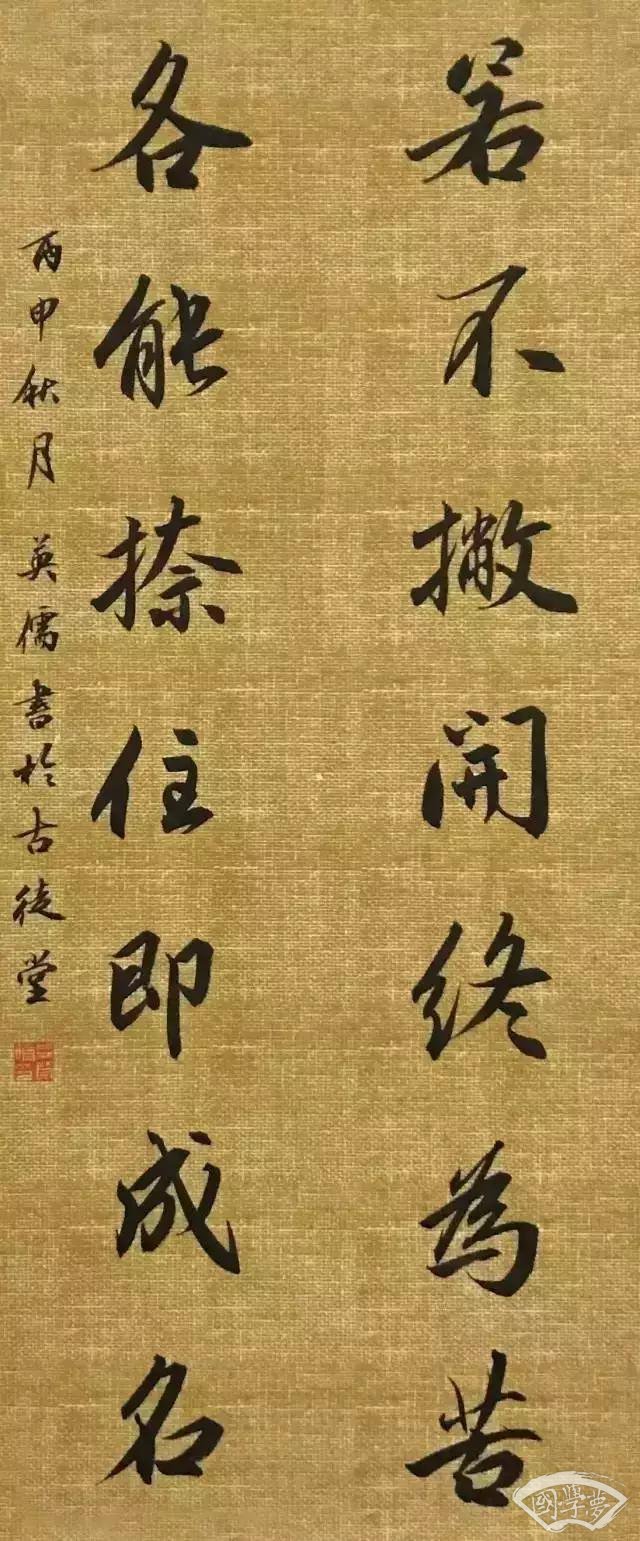 若不撇開終為苦
各能捺住即成名
丙申秋月英儒書於古徒堂
國學夢